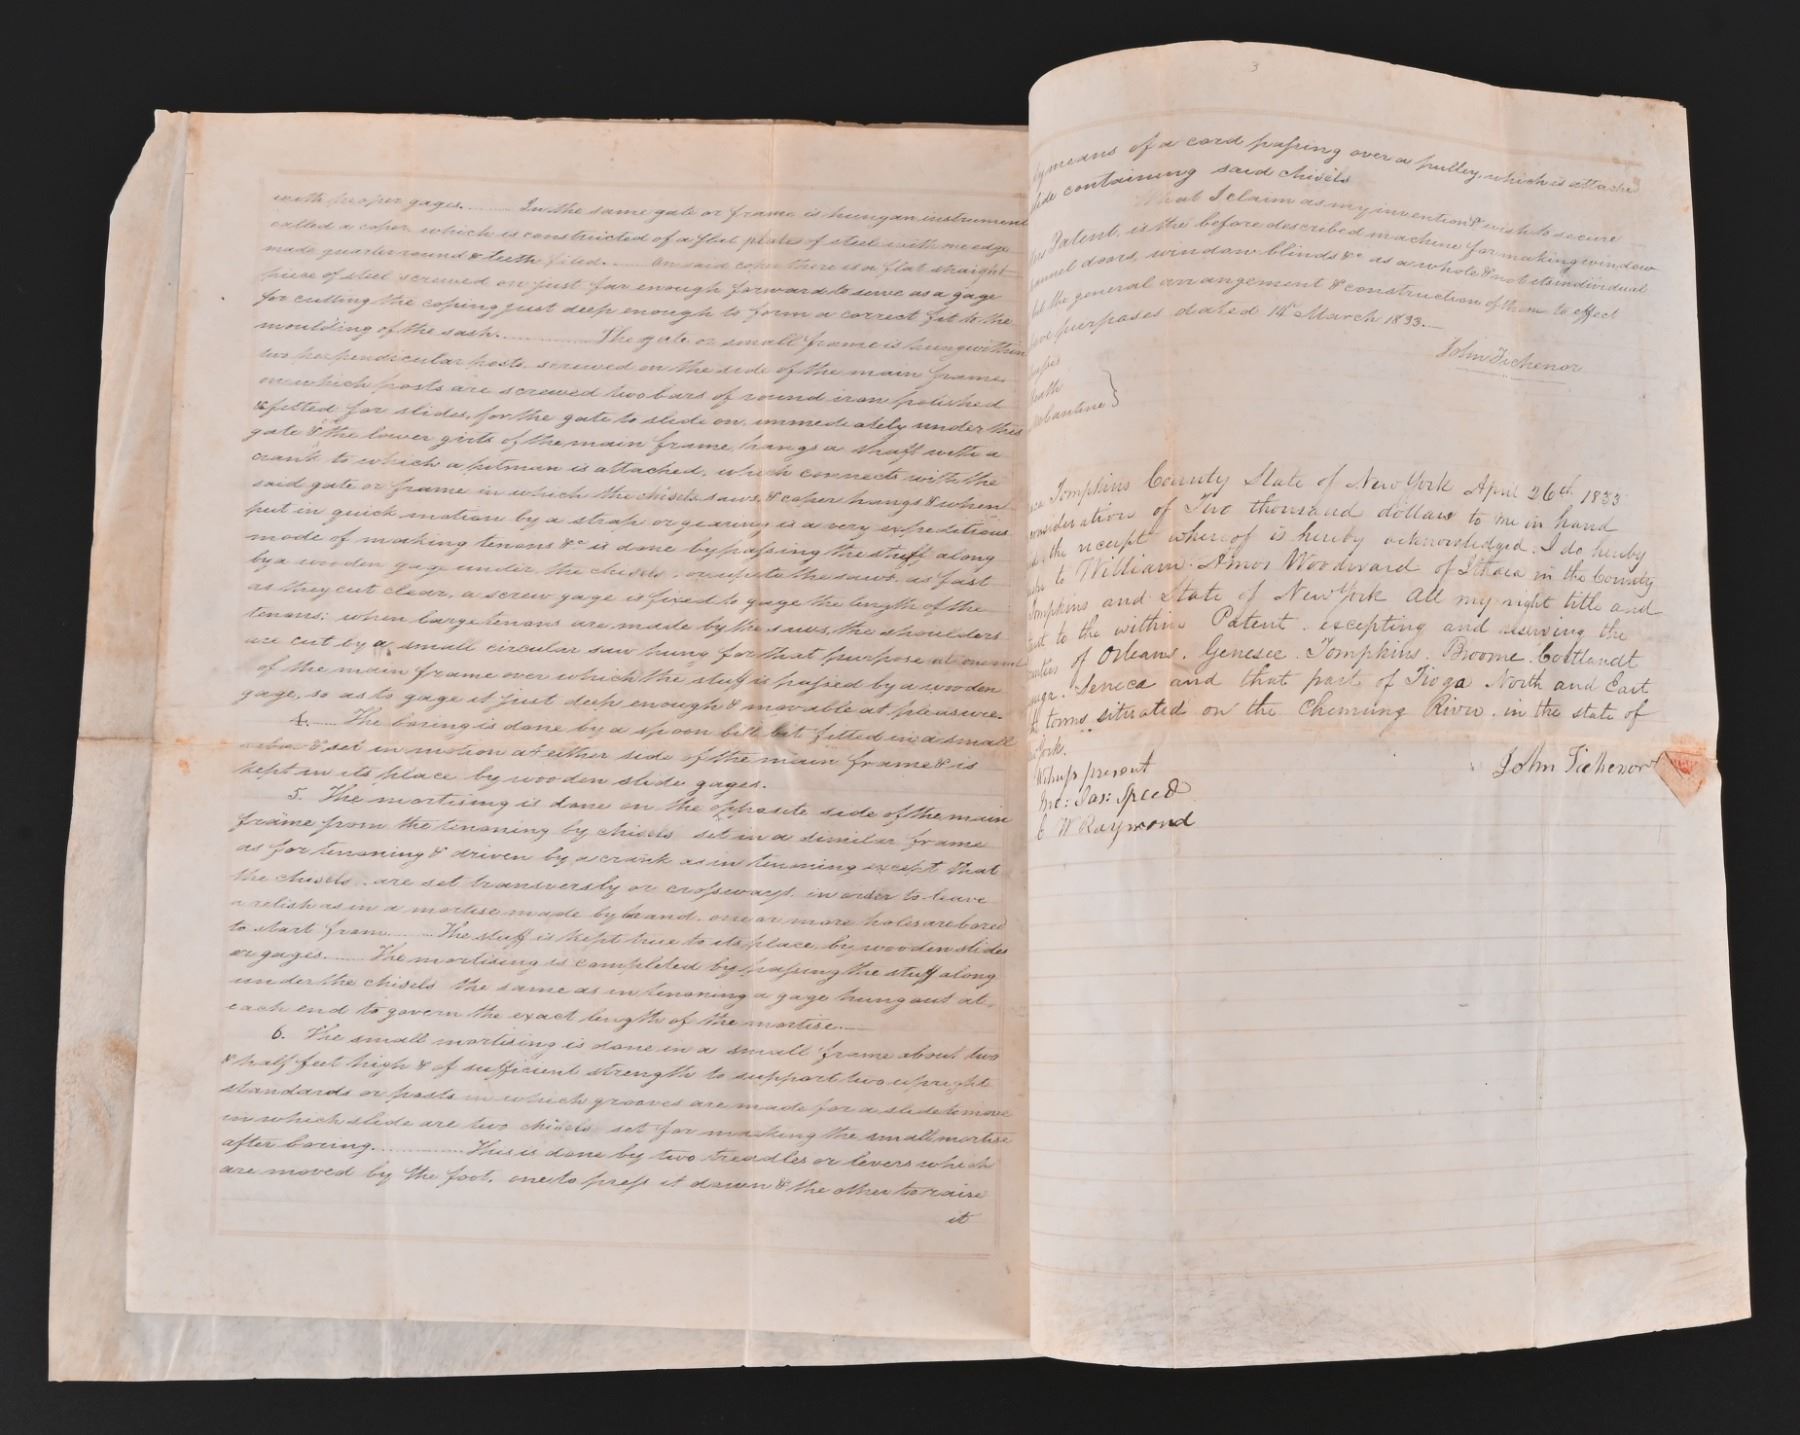 with proper gages. ........ In the same gate or frame is hung an instrument
called a coper which is constructed of a flat plate of steel with one edge
made quarter round & teeth filed. ...... On said coper there is a flat straight
piece of steel screwed on just far enough forward to serve as a gage
for cutting the coping just deep enough to form a correct fit to the
moulding of the sash. ............... The gate or small frame is hung within
two perpendicular posts, screwed on the side of the main frame.
on which posts are screwed two bars of round iron polished
& fitted for slides, for the gate to slide on, immediately under this
gate & the lower girts of the main frame, hangs a shaft with a
crank to which a pitman is attached, which connects with the
said gate or frame in which the chisels saws, & coper hangs & when
put in quick motion by a strap or gearing is a very expeditious
mode of making tenons &c is done by passing the stuff along
by a wooden gage under the chisels, or up to the saws, as fast
as they cut clear, a screw gage is fixed to gage the length of the
tenons; when large tenons are made by the saws, the shoulders
are cut by a small circular saw hung for that purpose at one end
of the main frame over which the stuff is passed by a wooden
gage, so as to gage it just deep enough & movable at pleasure.
4. ...... The boring is done by a spoon bitt bit fitted in a small
& set in motion at either side of the main frame & is
kept in its place by wooden slide gages.
5. The mortising is done on the opposite side of the main
frame from the tenoning by chisels set in a similar frame
as for tenoning & driven by a crank as in tenoning except that
the chisels are set transversly or crossways, in order to leave
a relish as in a mortise made by hand. one or more holes are bored
to start from ........ The stuff is kept true to its place by wooden slides
or gages. ...... The mortising is completed by passing the stuff along
under the chisels the same as in tenoning a gage hung out at
each end to govern the exact length of the mortise. ....
6. The small mortising is done in a small frame about two
& half feet high & of sufficient strength to support two upright
standards or posts in which grooves are made for a slide to move
in which slide are two chisels set for making the small mortise
after boring. ............... This is done by two treadles or levers which
are moved by the foot, one to press it down & the other to raise
it
3
by means of a cord passing over a pulley, which is attache
slide containing said chisels
What I claim as my invention & wish to secure
Patent, is the before described machine for making window
pannel doors, window blinds &c as a whole & not its individual
but the general arrangement & construction of them to effect
purposes dated 14th March 1833.
John Tichenor
Tompkins County State of New York April 26th 1833
consideration of Two thousand dollars to me in hand
the receipt whereof is hereby acknowledged. I do hereby
to William Amos Woodward of Ithaca in the County
Tompkins and State of New York All my right title and
to the within Patent. excepting and reserving the
of Orleans. Genesee. Tompkins. Broome. Cortlandt
Seneca and that part of Tioga North and East
towns situated on the Chemung River. in the state of
York.
Witness present
John Tichenor
Jas: Speed
C W Raymond